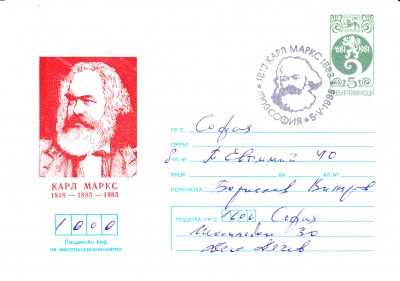 КАРЛ МАРКС
1818 — 1883 — 1983
1000
Пощенски код
на местоназначението
1818 КАРЛ МАРКС 1883
СОФИЯ 5-V-1983
681 1981
5
БЪЛГАРИЯ
ГР. С. София
ОКРЪГ
УЛ. П. Евтимий 40
БЛОК ВХ АП. №
ПОЛУЧАТЕЛ Борислав
ПОДАТЕЛ - ГР. С. 1600 София
30